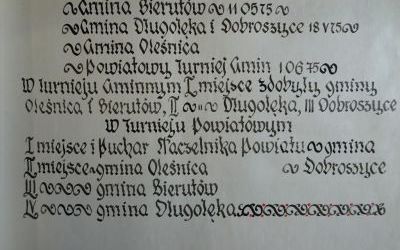 Gmina Bierutów 11 05 75
Gmina Długołęka i Dobroszyce 18 V 75
Gmina Oleśnica
Powiatowy Turniej Gmin 1 06 75
W turnieju Gminnym I miejsce zdobyły gminy
Oleśnica i Bierutów, II -"- Długołęka, III Dobroszyce
W turnieju Powiatowym
I miejsce i Puchar Naczelnika Powiatu gmina
II miejsce gmina Oleśnica Dobroszyce
III gmina Bierutów
IV gmina Długołęka